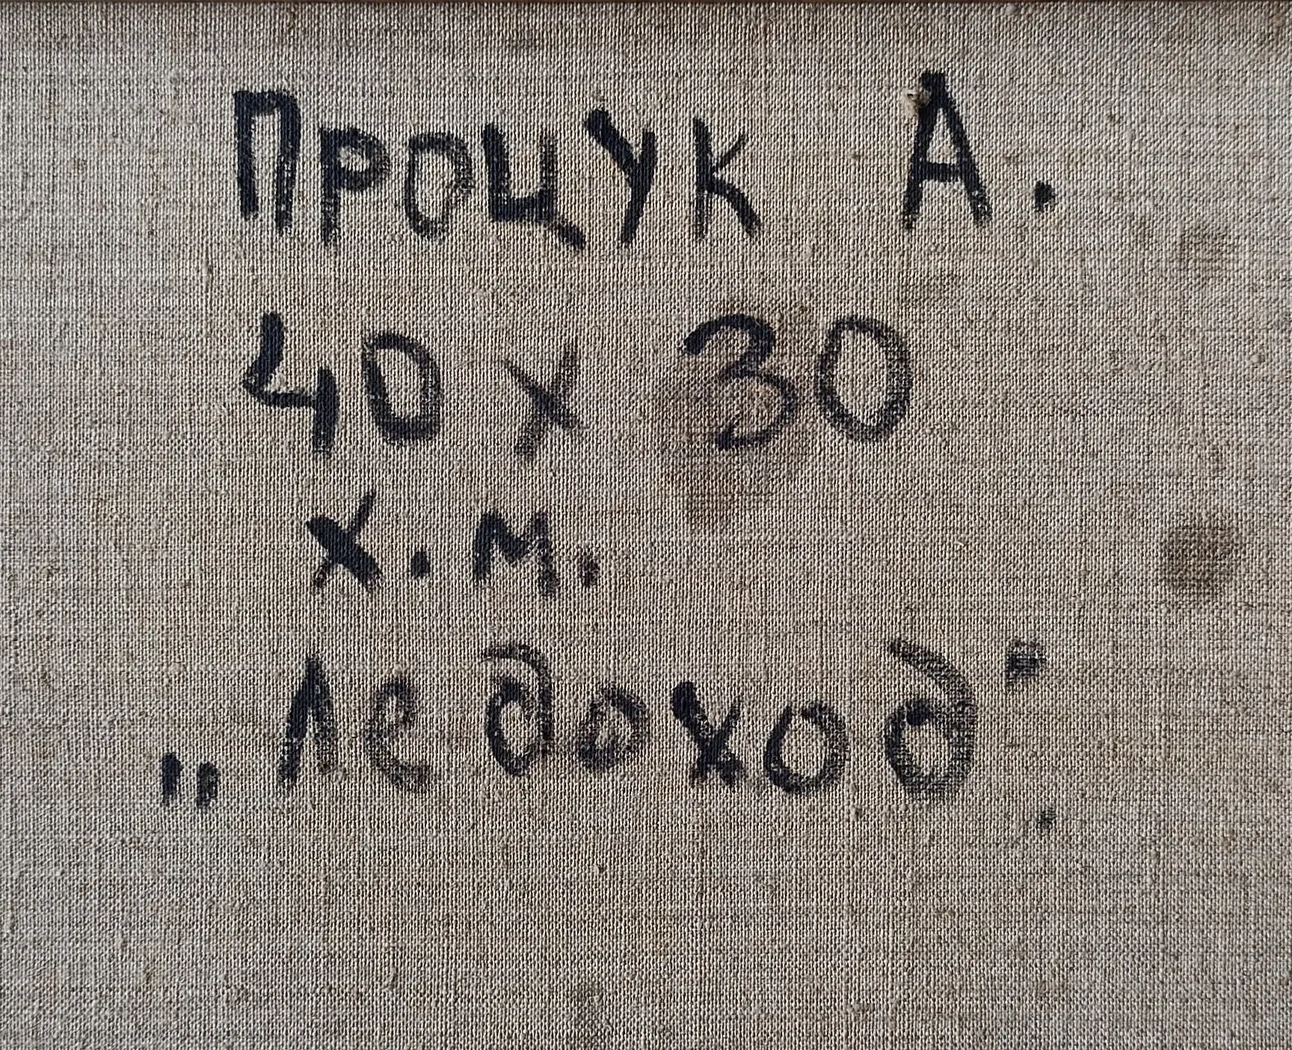 Процук А.
40 х 30
х. м.
„Ледоход".